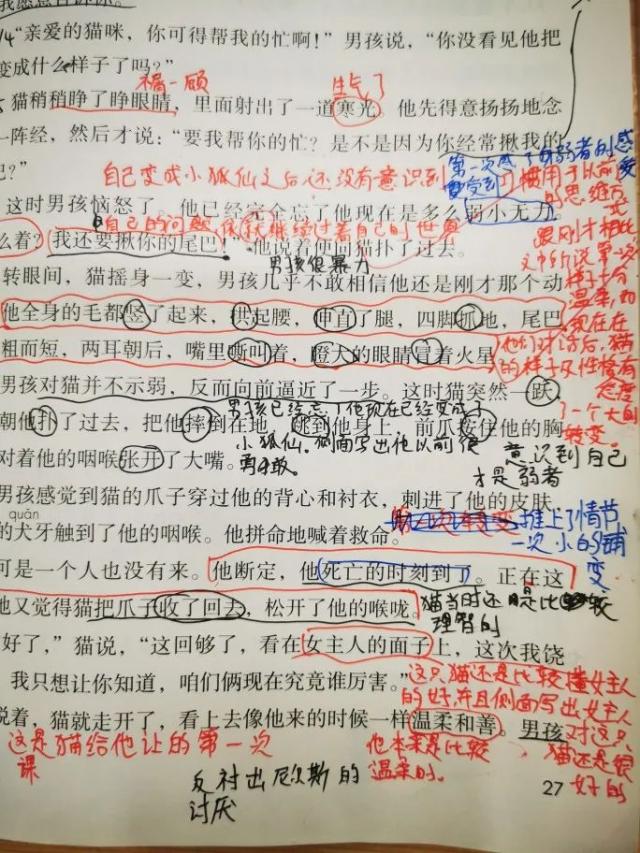 我愿意
"亲爱的猫咪，你可得帮我的忙啊！"男孩说，"你没看见他把
变成什么样子了吗？"
生气了
猫稍稍睁了睁眼睛，里面射出了一道寒光。他先得意扬扬地念
一阵经，然后才说："要我帮你的忙？是不是因为你经常揪我的
巴？"
自己变成小狐仙之后还没有意识到
自己的问题
这时男孩恼怒了，他已经完全忘了他现在是多么弱小无力。
么着？我还要揪你的尾巴！"他说着便向猫扑了过去。
男孩很暴力
转眼间，猫摇身一变，男孩几乎不敢相信他还是刚才那个动
他全身的毛都竖了起来，拱起腰，伸直了腿，四脚抓地，尾巴
粗而短，两耳朝后，嘴里嘶叫着，瞪大的眼睛冒着火星
跟刚才相比
文中所说第一次
样子十分
温柔，而
现在在
他们对话后，猫
的样子及性格有
了一个大的
转变
男孩对猫并不示弱，反而向前逼近了一步。这时猫突然一跃，
朝他扑了过去，把他摔倒在地，跳到他身上，前爪按住他的胸
对着他的咽喉张开了大嘴。
男孩已经忘了他现在已经变成了
小狐仙。侧面写出他以前很
勇敢。
意识到自己
才是弱者
男孩感觉到猫的爪子穿过他的背心和衬衣，刺进了他的皮肤，
quán
的犬牙触到了他的咽喉。他拼命地喊着救命。
推上了情节
一次小的铺
可是一个人也没有来。他断定，他死亡的时刻到了。正在这
他又觉得猫把爪子收了回去，松开了他的喉咙。
猫当时还是比较
理智的
好了，"猫说，"这回够了，看在女主人的面子上，这次我饶
我只想让你知道，咱们俩现在究竟谁厉害。"
说着，猫就走开了，看上去像他来的时候一样温柔和善。男孩
这只猫还是比较懂女主人
的好，并且侧面写出女主人
对这只
猫还是很
好的
这是猫给他让的第一次
课
他本来是比较
温柔的。
反衬出尼尔斯的
讨厌
27